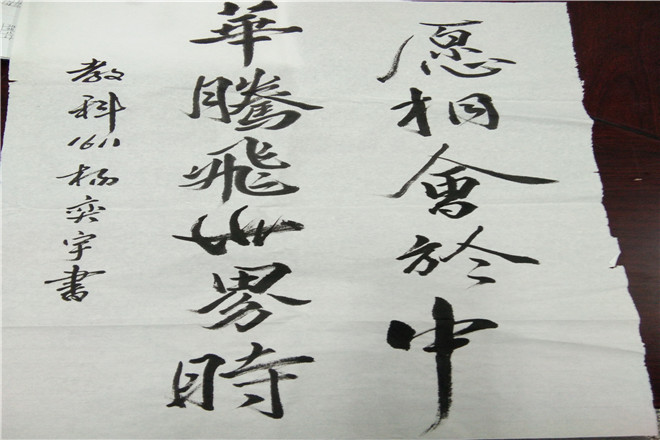 愿相會於中
華騰飛世界時
教科1611楊奕宇書